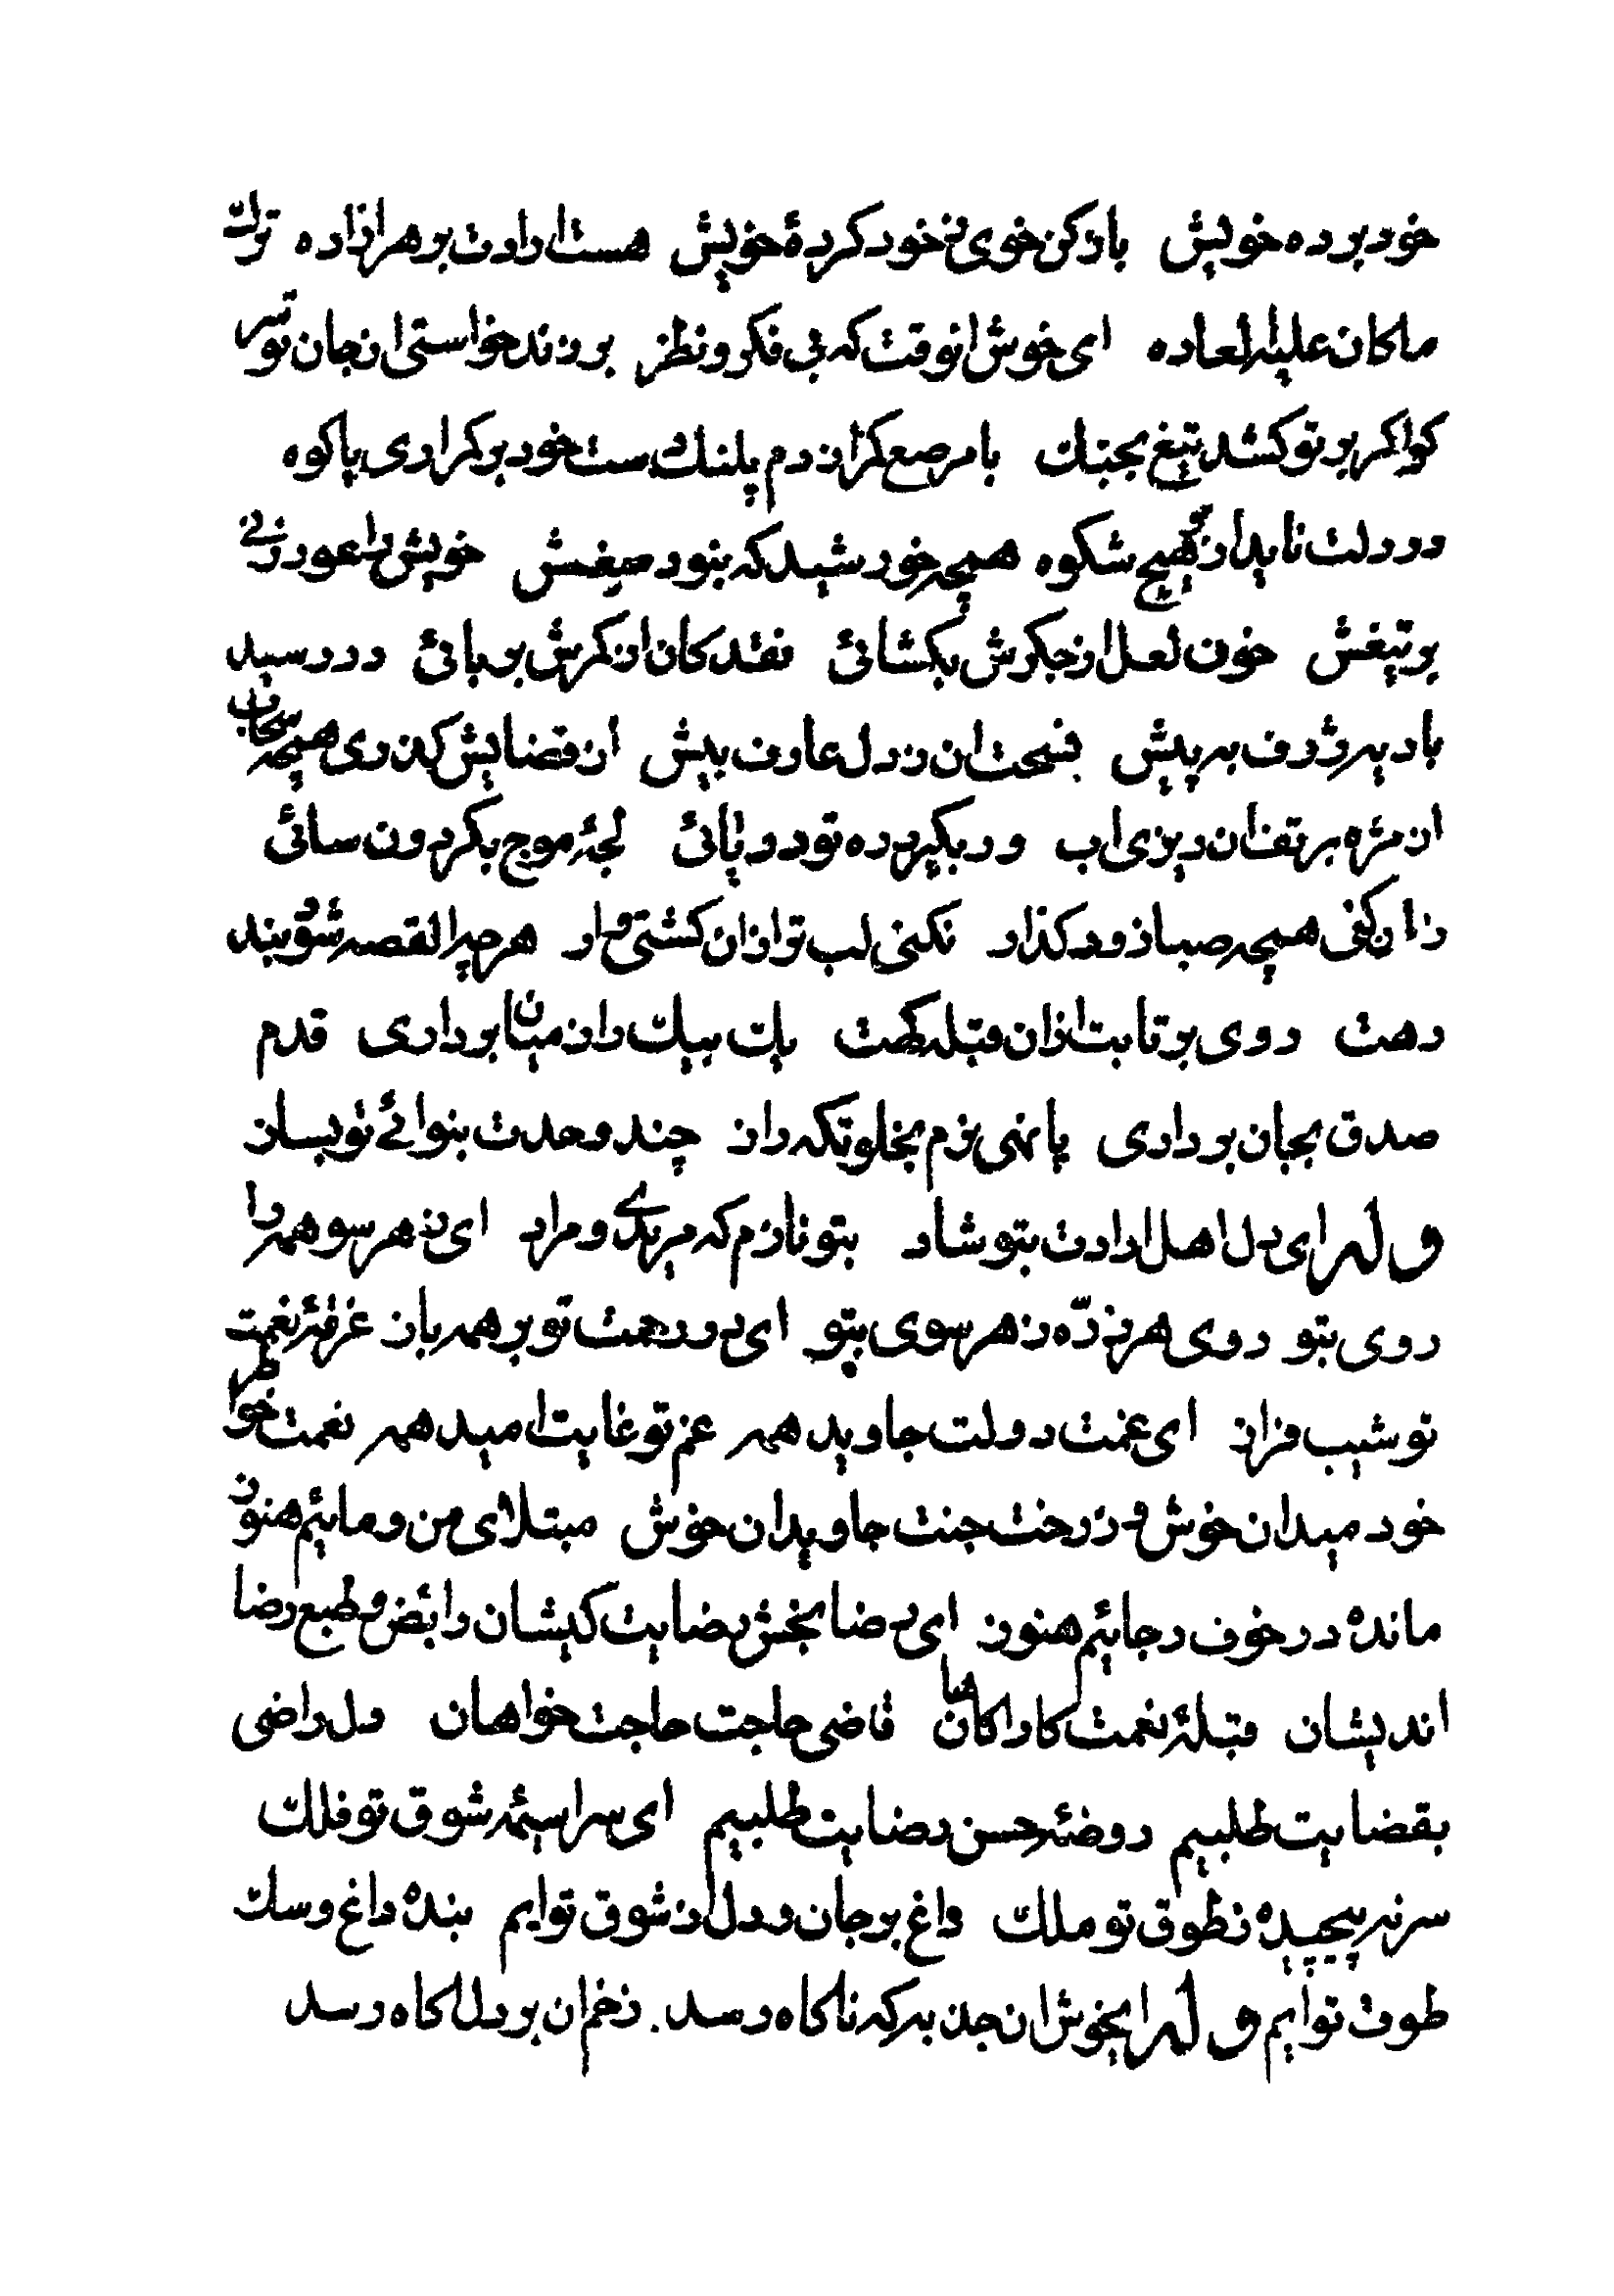 خود برده خویش بازکن خوی ز خود کردهٔ خویش هست ارادت بر هر ازاده ترک
ماکان علیه العاده ای خوش انوقت که بی فکر و نظر بر زند خواستی از جان تو سر
کوا کر بر تو کشد تیغ بجنک با مرصع کمر از دم پلنک دست خود بر کمر اری با کوه
در دلت ناید ازو هیچ شکوه همچه خورشید که بنود میغش خویش را عور زنی
بر تیغش خون لعل از جکرش بکشائی نقد کان از کمرش بربائی ور رسید
بادیه ژرف به پیش فسحت ان ز دل عارف بیش از فضایش کذری همچه سحاب
از مژه بر تفان ریزی اب ور بکیرد ره تو دریائی لجهٔ موج بکردون سائی
زان کنی همچه صبا زود کذار نکنی لب تر ازان کشتی وار هر چه القصه شود بند
رهت روی برتابت ازان قبله کهت یک بیک را ز میان برداری قدم
صدق بجان برداری پا نهی نرم بخلوتکه راز چند وحدت بنوائے نو بساز
وله ای دل اهل ارادت بتو شاد بتو نازم که مریدے و مراد ای ز هر سو همه را
روی بتو روی هر ذرّه ز هر سوی بتو ای در رحمت تو بر همه باز غرقهٔ نعمت
تو شیب فراز ای غمت دولت جاوید همه غم تو غایت امید همه نعمت خوا
خود میدان خوش وز رخت جنت جاویدان خوش مبتلای من و مایٔم هنوز
ماندهٔ در خوف رجایٔم هنوز ای رضا بخش رضایت کیشان رایٔض و طبع رضا
اندیشان قبلهٔ نعمت کاراکاهان قاضی حاجت حاجت خواهان دل راضی
بقضایت طلبیم روضهٔ حسن رضایت طلبیم ای سراسیمٔه شوق تو فلک
سر نه پیچیدهٔ ز طوق تو ملک داغ بر جان و دل از شوق توایم بندهٔ داغ و سک
طوق توایم وله ایخوش ان جذبه که ناکاه رسد. زخم ان بر دل اکاه رسد